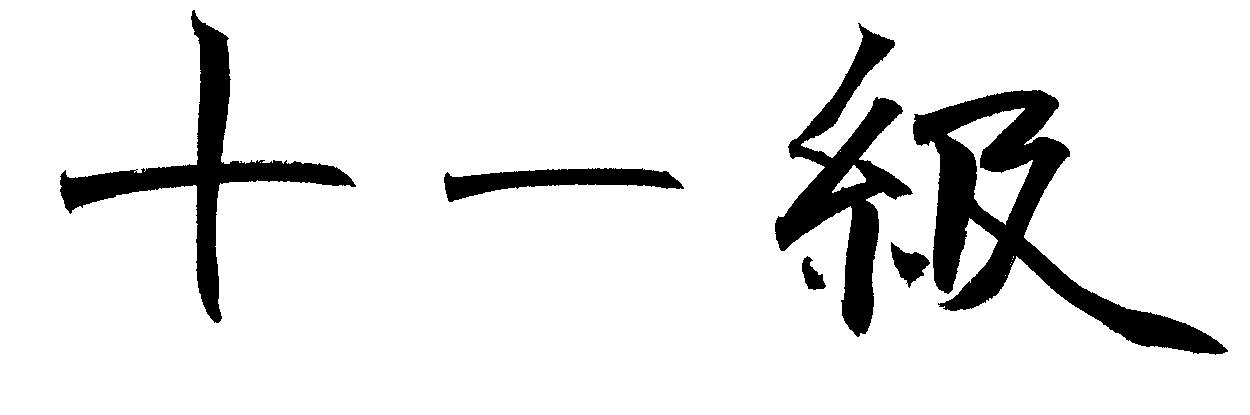 十一級